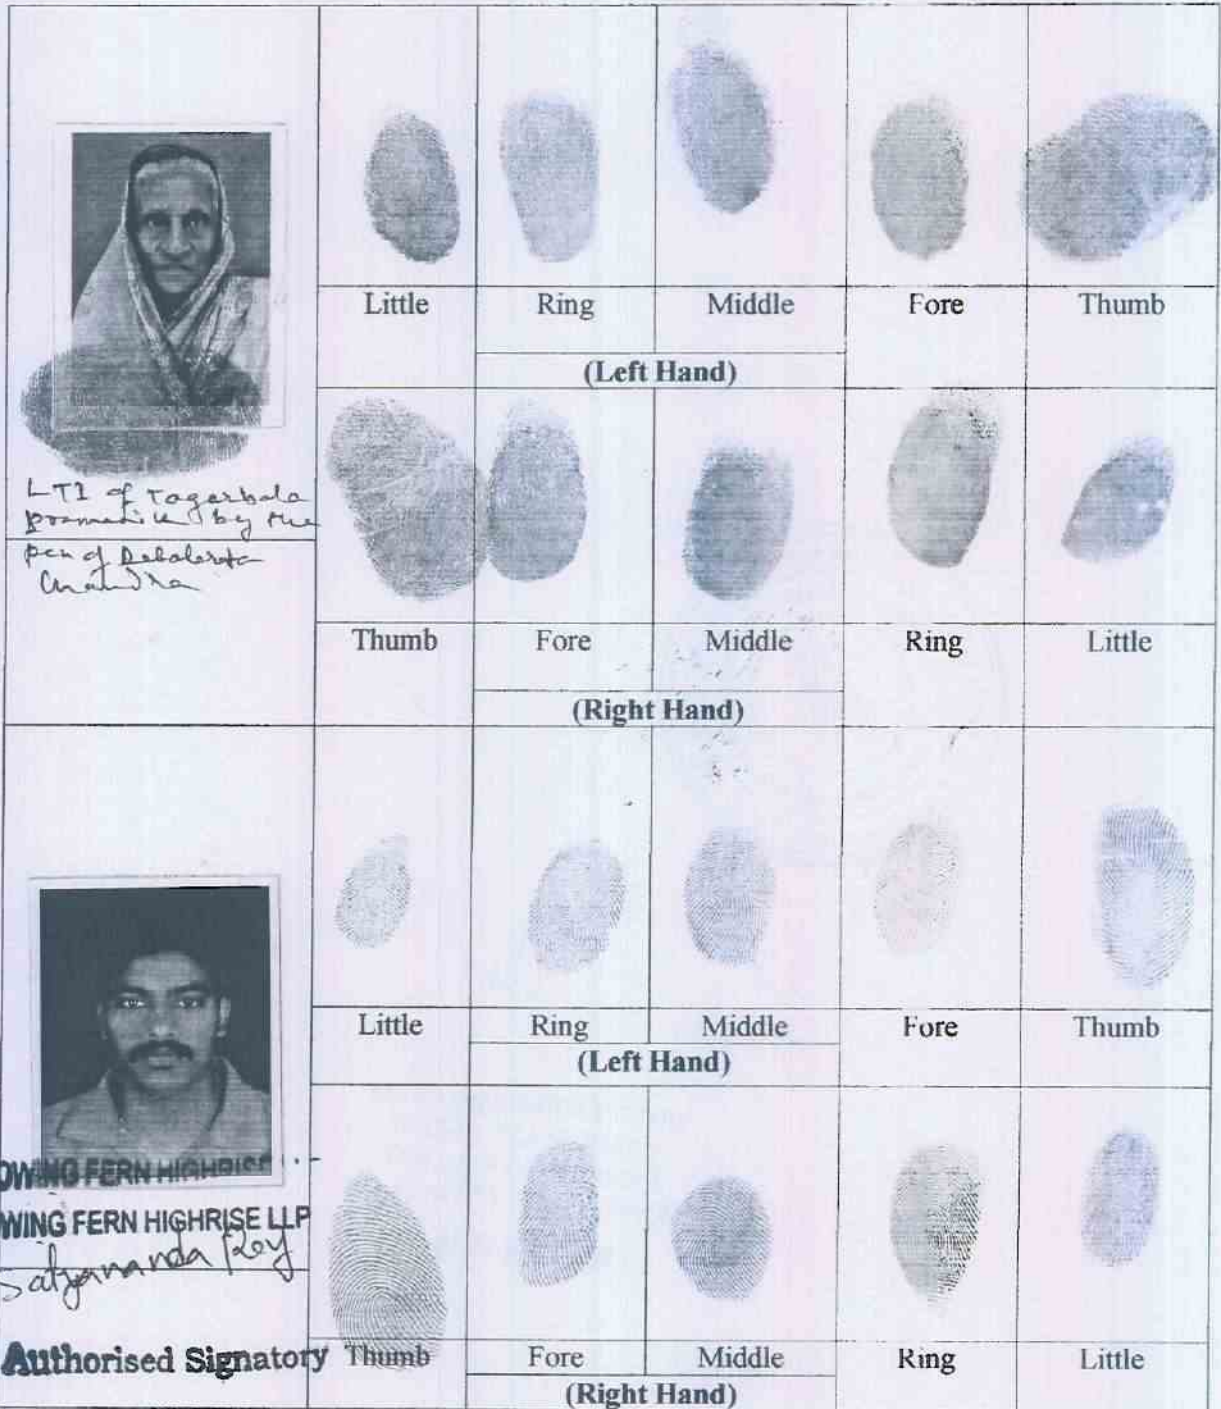 Little Ring Middle Fore Thumb
(Left Hand)
LTI of Tagarbala
by the
pen of
Chandra
Thumb Fore Middle Ring Little
(Right Hand)
Little Ring Middle Fore Thumb
(Left Hand)
OWING FERN HIGHRISE
WING FERN HIGHRISE LLP
Satyananda Roy
Authorised Signatory
Thumb Fore Middle Ring Little
(Right Hand)